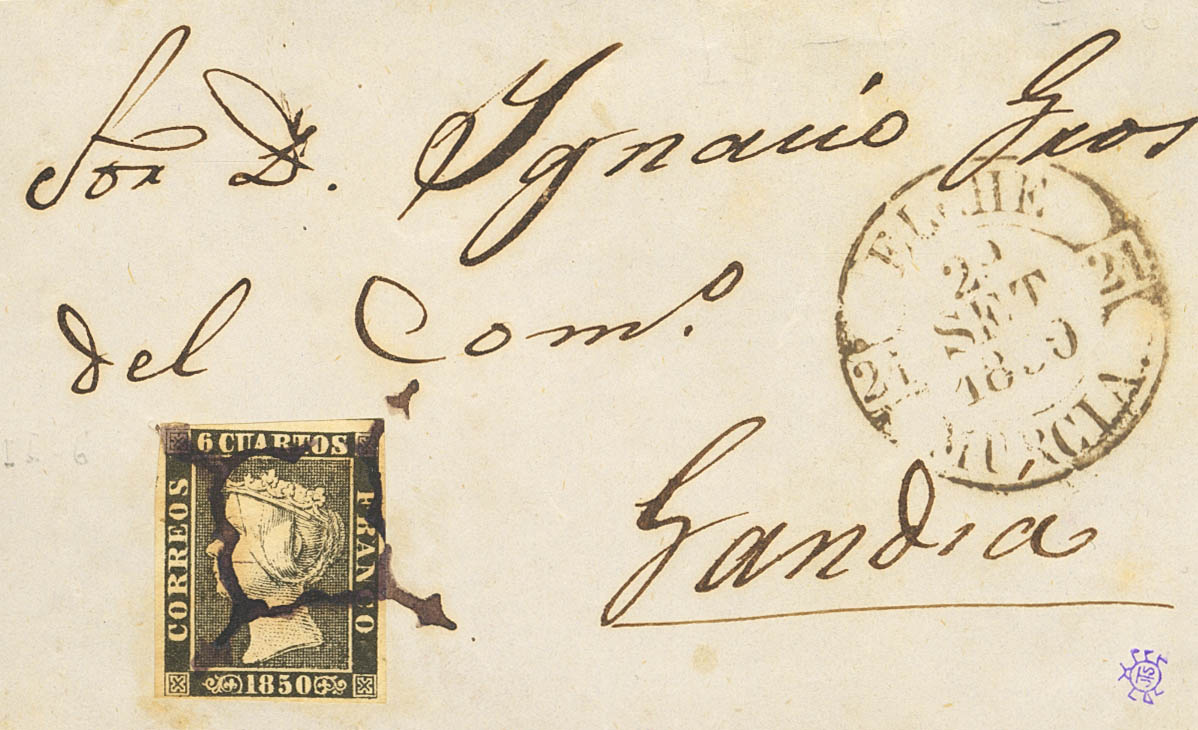 Sor D. Ignacio Gros
del Com.º
Gandia
ELCHE
25
SET
1850
21 21
MURCIA.
6 CUARTOS
CORREOS
FRANCO
1850
JTS